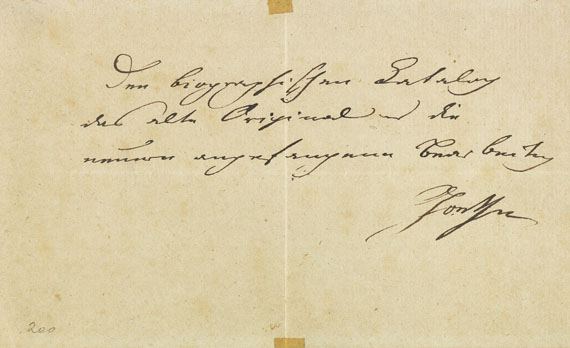 Den biographischen Catalog
das alte Original u die
neuere angefangene Bearbeitg
Goethe
200